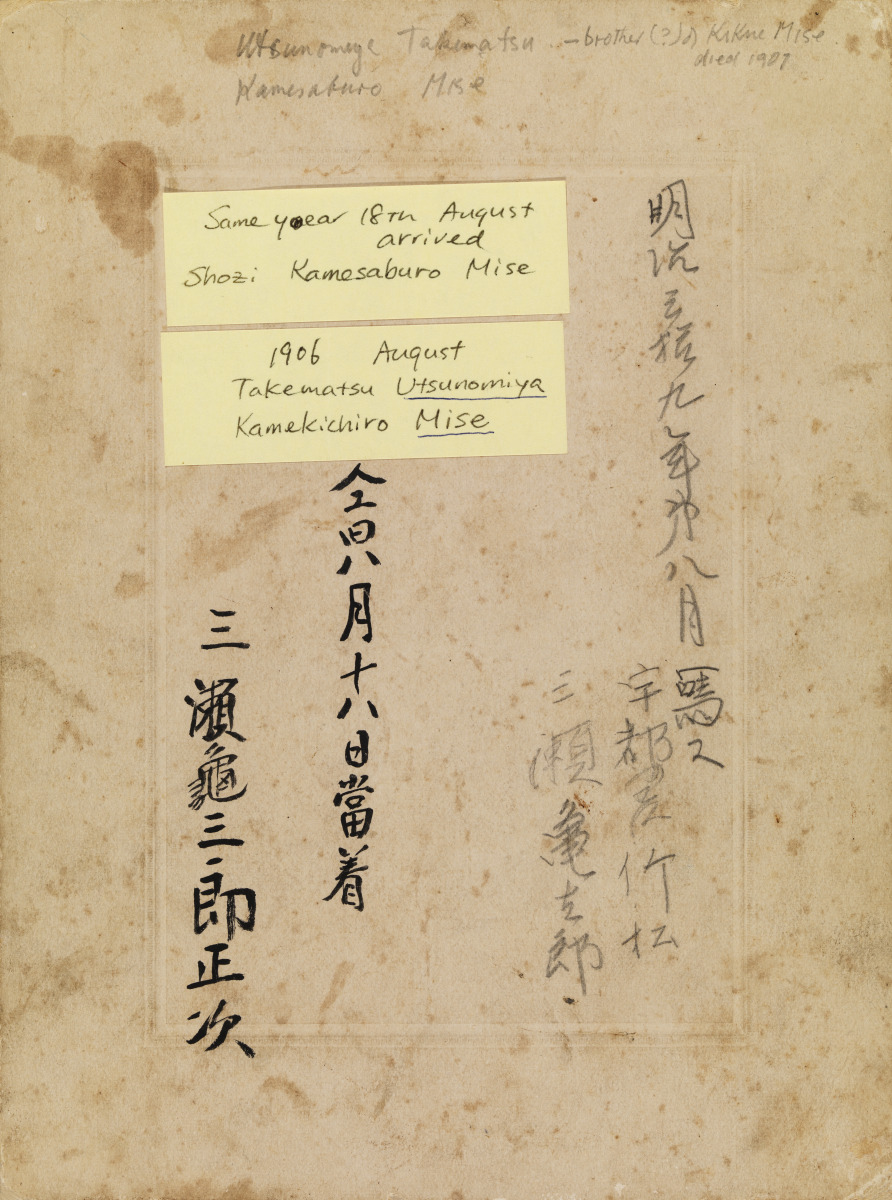 Utsunomiya Takematsu – brother (?) of Kikue Mise
died 1907
Kamesaburo Mise
Same year 18TH August
arrived
Shozi Kamesaburo Mise
1906 August
Takematsu Utsunomiya
Kamekichiro Mise
明治三拾九年第八月寫ス
宇都宮竹松
三瀬亀吉郎
仝四八月十八日當着
三瀬龜三郎正次